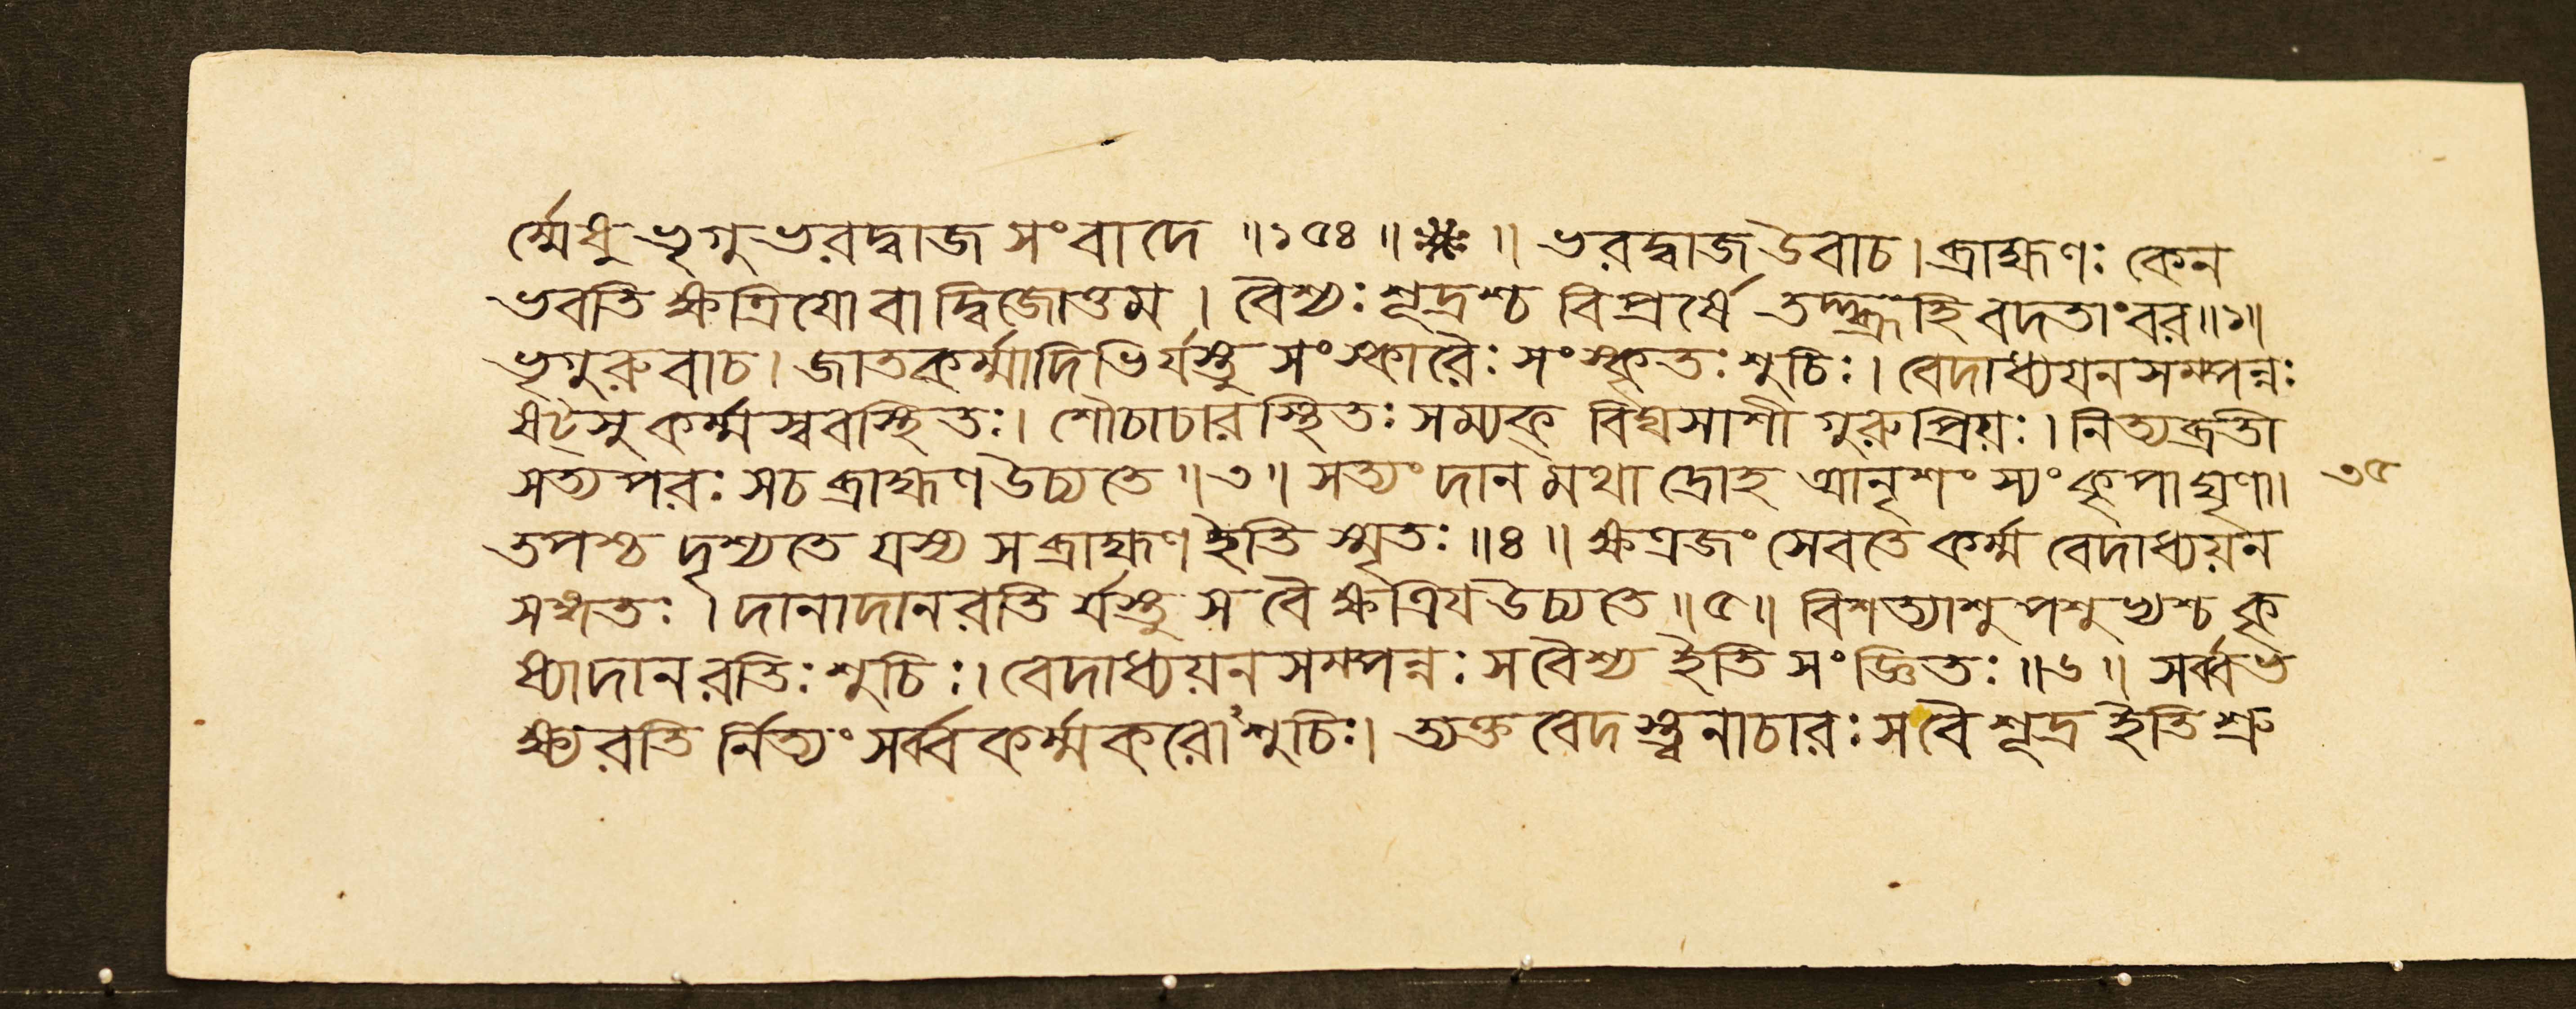 র্ম্মেষু ভৃগুভরদ্বাজ সংবাদে ॥১৫৪॥ ※ ॥ ভরদ্বাজ উবাচ। ব্রাহ্মণঃ কেন
ভবতি ক্ষত্রিয়ো বা দ্বিজোত্তম । বৈশ্যঃ শূদ্রশ্চ বিপ্রর্ষে তদ্ব্রূহি বদতাংবর॥১॥
ভৃগুরুবাচ। জাতকর্ম্মাদিভির্যস্তু সংস্কারৈঃ সংস্কৃতঃ শুচিঃ। বেদাধ্যয়নসম্পন্নঃ
ষট্সু কর্ম্মস্ববস্থিতঃ। শৌচাচারস্থিতঃ সম্যক্ বিঘসাশী গুরুপ্রিয়ঃ। নিত্যব্রতী
সত্যপরঃ সচ ব্রাহ্মণ উচ্যতে ॥৩॥ সত্যং দানমথাদ্রোহ আনৃশংস্যং কৃপা ঘৃণা।
৩৫
তপশ্চ দৃশ্যতে যস্য স ব্রাহ্মণ ইতি স্মৃতঃ ॥৪॥ ক্ষত্রজং সেবতে কর্ম্ম বেদাধ্যয়ন
সঙ্গতঃ । দানাদানরতি র্যস্তু স বৈ ক্ষত্রিয উচ্যতে ॥৫॥ বিশত্যাশু পশুভ্যশ্চ কৃ
ষ্যাদানরতিঃ শুচিঃ। বেদাধ্যয়নসম্পন্নঃ স বৈশ্য ইতি সংজ্ঞিতঃ ॥৬॥ সর্ব্বভ
ক্ষ্যরতি র্নিত্যং সর্ব্বকর্ম্মকরো'শুচিঃ। ত্যক্তবেদস্ত্বনাচারঃ স বৈ শূদ্র ইতি শ্রু